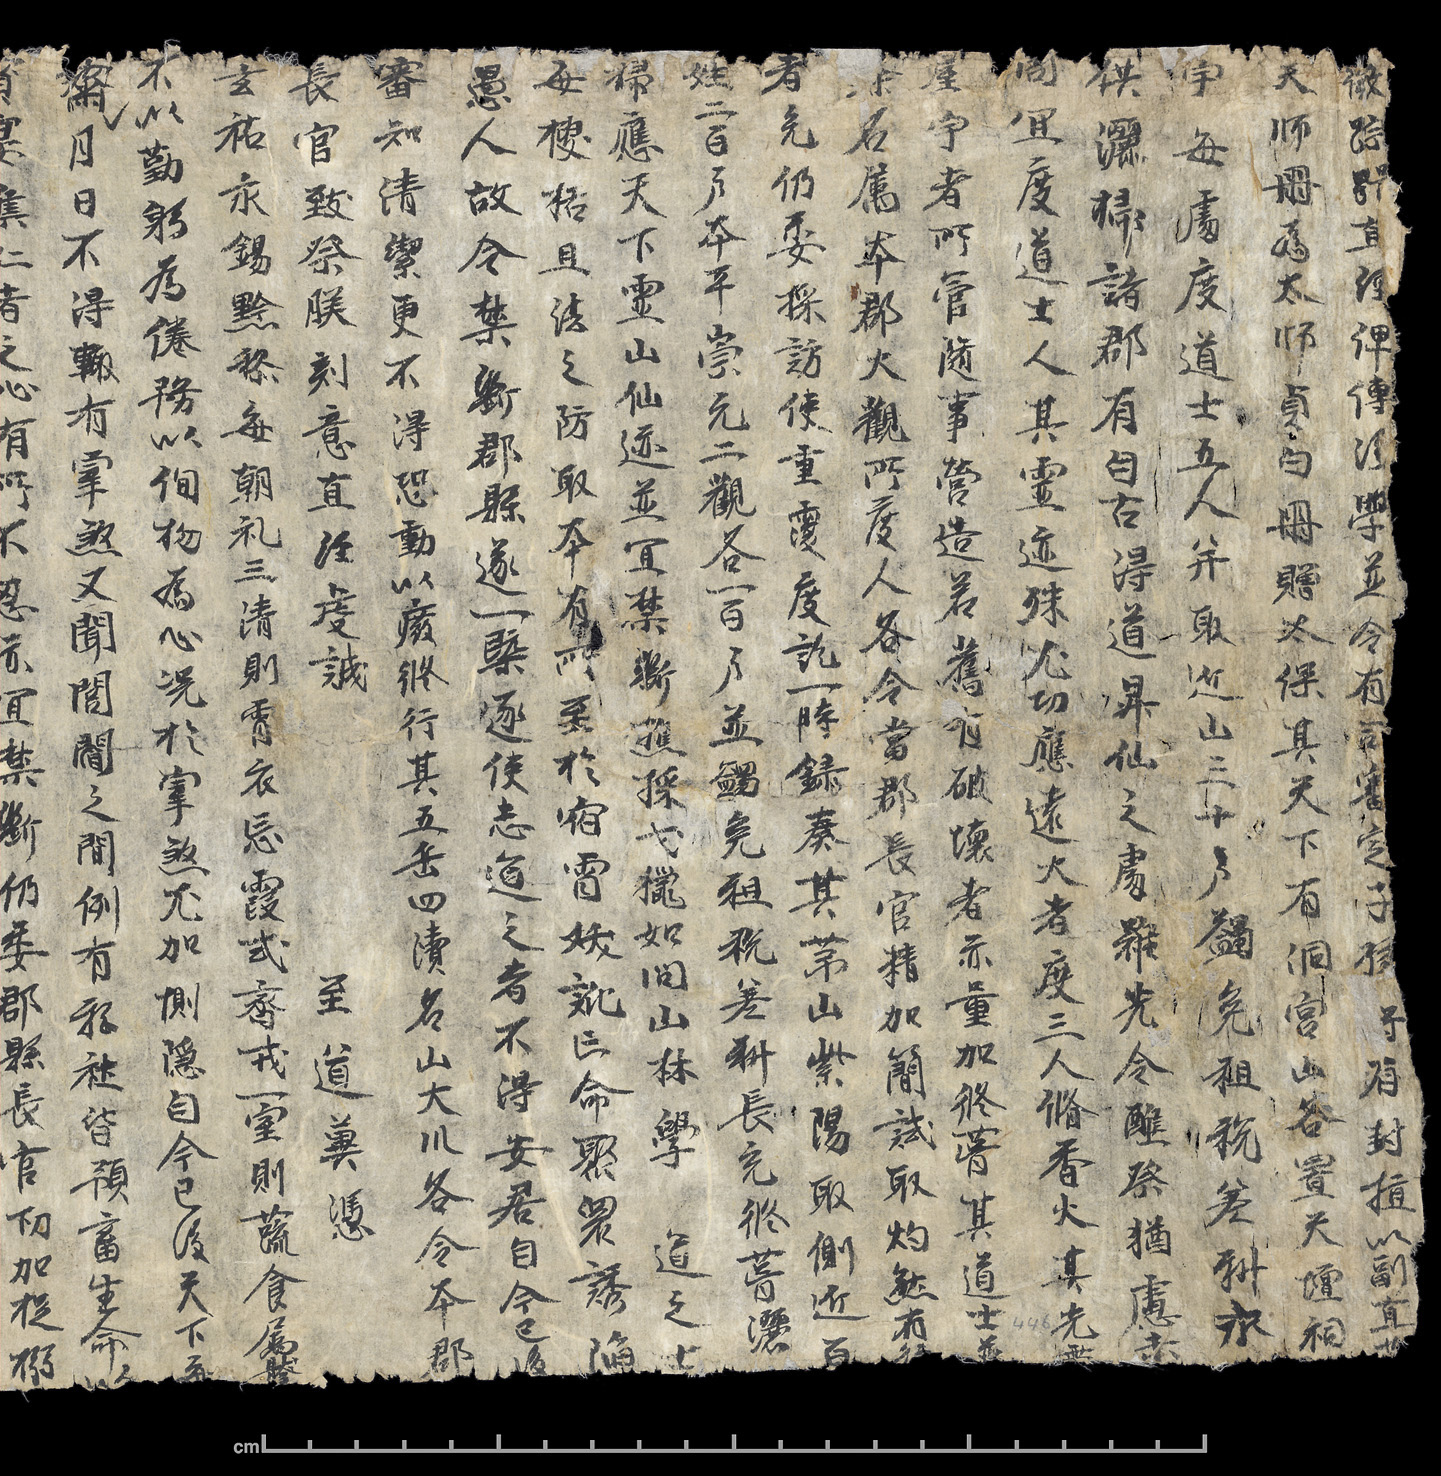 經俾傳後學並令有司審定子孫將有封植以副真
天師冊為太師貞白冊贈太保其天下有洞宮山各置天壇祠
宇每處度道士五人并取近山三十戶蠲免租稅差科永
供灑掃諸郡有自古得道昇仙之處雖先令醮祭猶慮未
周宜度道士二人其靈迹殊尤功應遠大者度三人脩香火其先無
屋宇者所管隨事營造若舊有破壞者亦量加修葺其道士並
名属本郡大觀所度人各令當郡長官精加簡試取灼然有
者充仍委採訪使重覆度訖一時録奏其茅山紫陽取側近百
姓二百戶本平崇元二觀各一百戶並蠲免租稅差科長充修葺灑
掃應天下靈山仙迹並宜禁斷樵採弋獵如聞山林學道之士
每被括且法之防取本有所至於宿宵妖訛亡命聚衆誘陷
愚人故令禁斷郡縣遂一槩逐使志道之者不得安居自今已後
審知清潔更不得恐動以廢修行其五岳四瀆名山大川各令本郡
長官致祭朕刻意直經虔誠至道冀憑
玄祐永錫黔黎每朝礼三清則霄衣忘寢或齋戒一室則蔬食属
不以勤躬為倦務以徇物為心況於宰煞尤加惻隱自今已後天下每
齋月日不得輒有宰煞又聞閭閻之間例有私社皆預畜生命以
資宴集仁者之心有所不忍亦宜禁斷仍委郡縣長官切加捉搦
446
cm